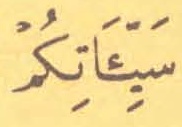 سَيِّئَاتِكُمْ